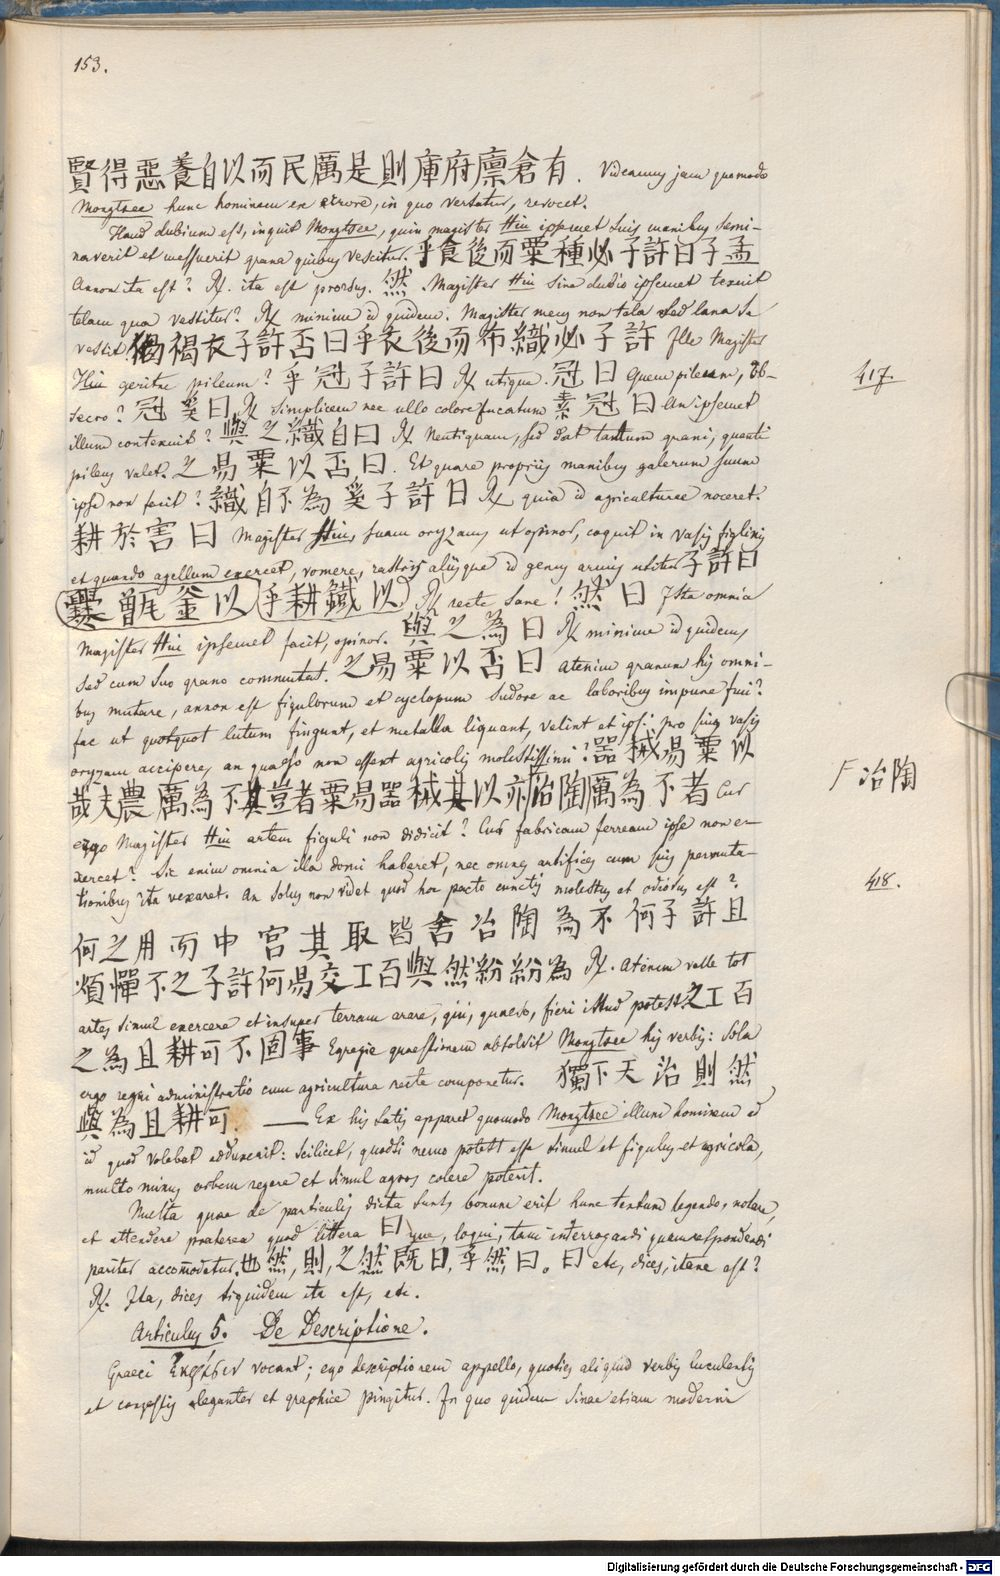 153.
有倉廩府庫則是厲民而以自養惡得賢. Videamus jam quomodo
Mongtsee hunc hominem ex errore, in quo versatur, revocet.
Haud dubium est, inquit Mongtsee, quin magister Hiu ipsemet suis manibus semi-
naverit et messuerit grana quibus vescitur. 孟子曰許子必種粟而後食乎
Annon ita est? ℞. ita est prorsus. 然. Magister Hiu sine dubio ipsemet texuit
telam qua vestitur? ℞ minime id quidem. Magister meus non tela sed lana se
vestit. 許子必織布而後衣乎曰否許子衣褐 Ille Magister
Hiu geritne pileum? 曰許子冠乎 ℞ utique. 曰冠 Quem pileum, ob-
secro? 曰奚冠 ℞ simplicem nec ullo colore fucatum 曰冠素 an ipsemet
illum contexuit? 曰自織之與 ℞ Neutiquam, sed dat tantum grani, quanti
pileus valet. 曰否以粟易之. Et quare propriis manibus galerum suum
ipse non facit? 曰許子奚為不自織 ℞ quia id agriculturae noceret.
曰害於耕 Magister Hiu, suam oryzam ut opinor, coquit in vasis figlinis
et quando agellum exercet, vomere, rastris aliisque id genus armis utitur 曰許子
以釜甑爨 以鐵耕乎 ℞ recte sane! 曰然 Ista omnia
Magister Hiu ipsemet facit, opinor. 曰為之與 ℞ minime id quidem
sed cum suo grano commutat. 曰否以粟易之 atenim granum his omni-
bus mutare, annon est figulorum et cyclopum sudore ac laboribus impune frui?
fac ut quotquot lutum fingunt, et metalla liquant, velint et ipsi pro suis vasis
oryzam accipere, an quaeso non essent agricolis molestissimi? 以粟易械器
者不為厲陶冶亦以其械器易粟者豈其不為厲農夫哉 Cur
ergo Magister Hiu artem figuli non didicit? Cur fabricam ferream ipse non e-
xercet? Sic enim omnia illa domi haberet, nec omnes artifices cum suis permuta-
tionibus ita vexaret. An solus non videt quod hoc pacto cunctis molestus et odiosus est?
且許子何不為陶冶舍皆取其宮中而用之何
為紛紛然與百工交易何許子之不憚煩 ℞. Atenim velle tot
artes simul exercere et insuper terram arare, qui, quaeso, fieri istud potest? 百工之
事固不可耕且為之 Egregie quaestionem absolvit Mongtsee his verbis: Sola
ergo regni administratio cum agricultura recte componetur. 然則治天下獨
可耕且為與. — Ex his satis apparet quomodo Mongtsee illum hominem ad
id quod volebat adduxerit: scilicet, quodsi nemo potest esse simul et figulus et agricola,
multo minus orbem regere et simul agros colere poterit.
Multa quae de particulis dicta sunt, bonum erit hunc textum legendo, notare,
et attendere praeterea quod littera 曰 yue, loqui, tam interrogandi quam respondendi
pariter accommodatur. 曰。曰然乎,曰既然之,則,然也 etc, dices, itane est?
℞. Ita, dices siquidem ita est, etc.
Articulus 5. De Descriptione.
Graeci Ἔκφρασιν vocant; ego descriptionem appello, quoties aliquid verbis luculentis
et congestis eleganter et graphice pingitur. In quo quidem Sinae etiam moderni
417
Γ 陶冶
418.
Digitalisierung gefördert durch die Deutsche Forschungsgemeinschaft - DFG